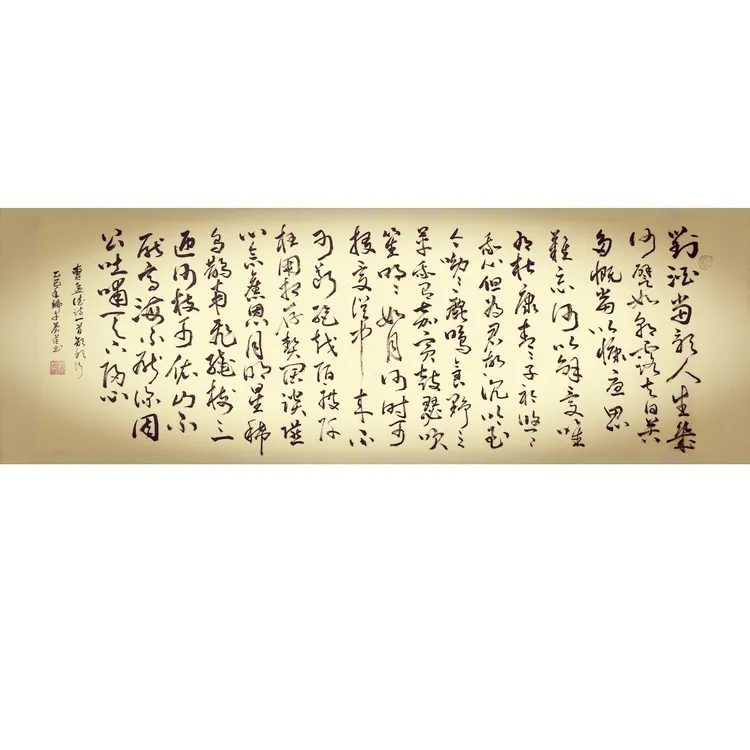 對酒當歌人生幾
何譬如朝露去日苦
多慨當以慷憂思
難忘何以解憂唯
有杜康青〻子衿悠〻
我心但為君故沉吟至
今呦〻鹿鳴食野之
苹我有嘉賓鼓瑟吹
笙明〻如月何時可
掇憂從中來不
可斷絕越陌度阡
枉用相存契闊談讌
心念舊恩月明星稀
烏鵲南飛繞樹三
匝何枝可依山不
厭高海不厭深周
公吐哺天下歸心
曹孟德詩一首短歌行
乙巳年書